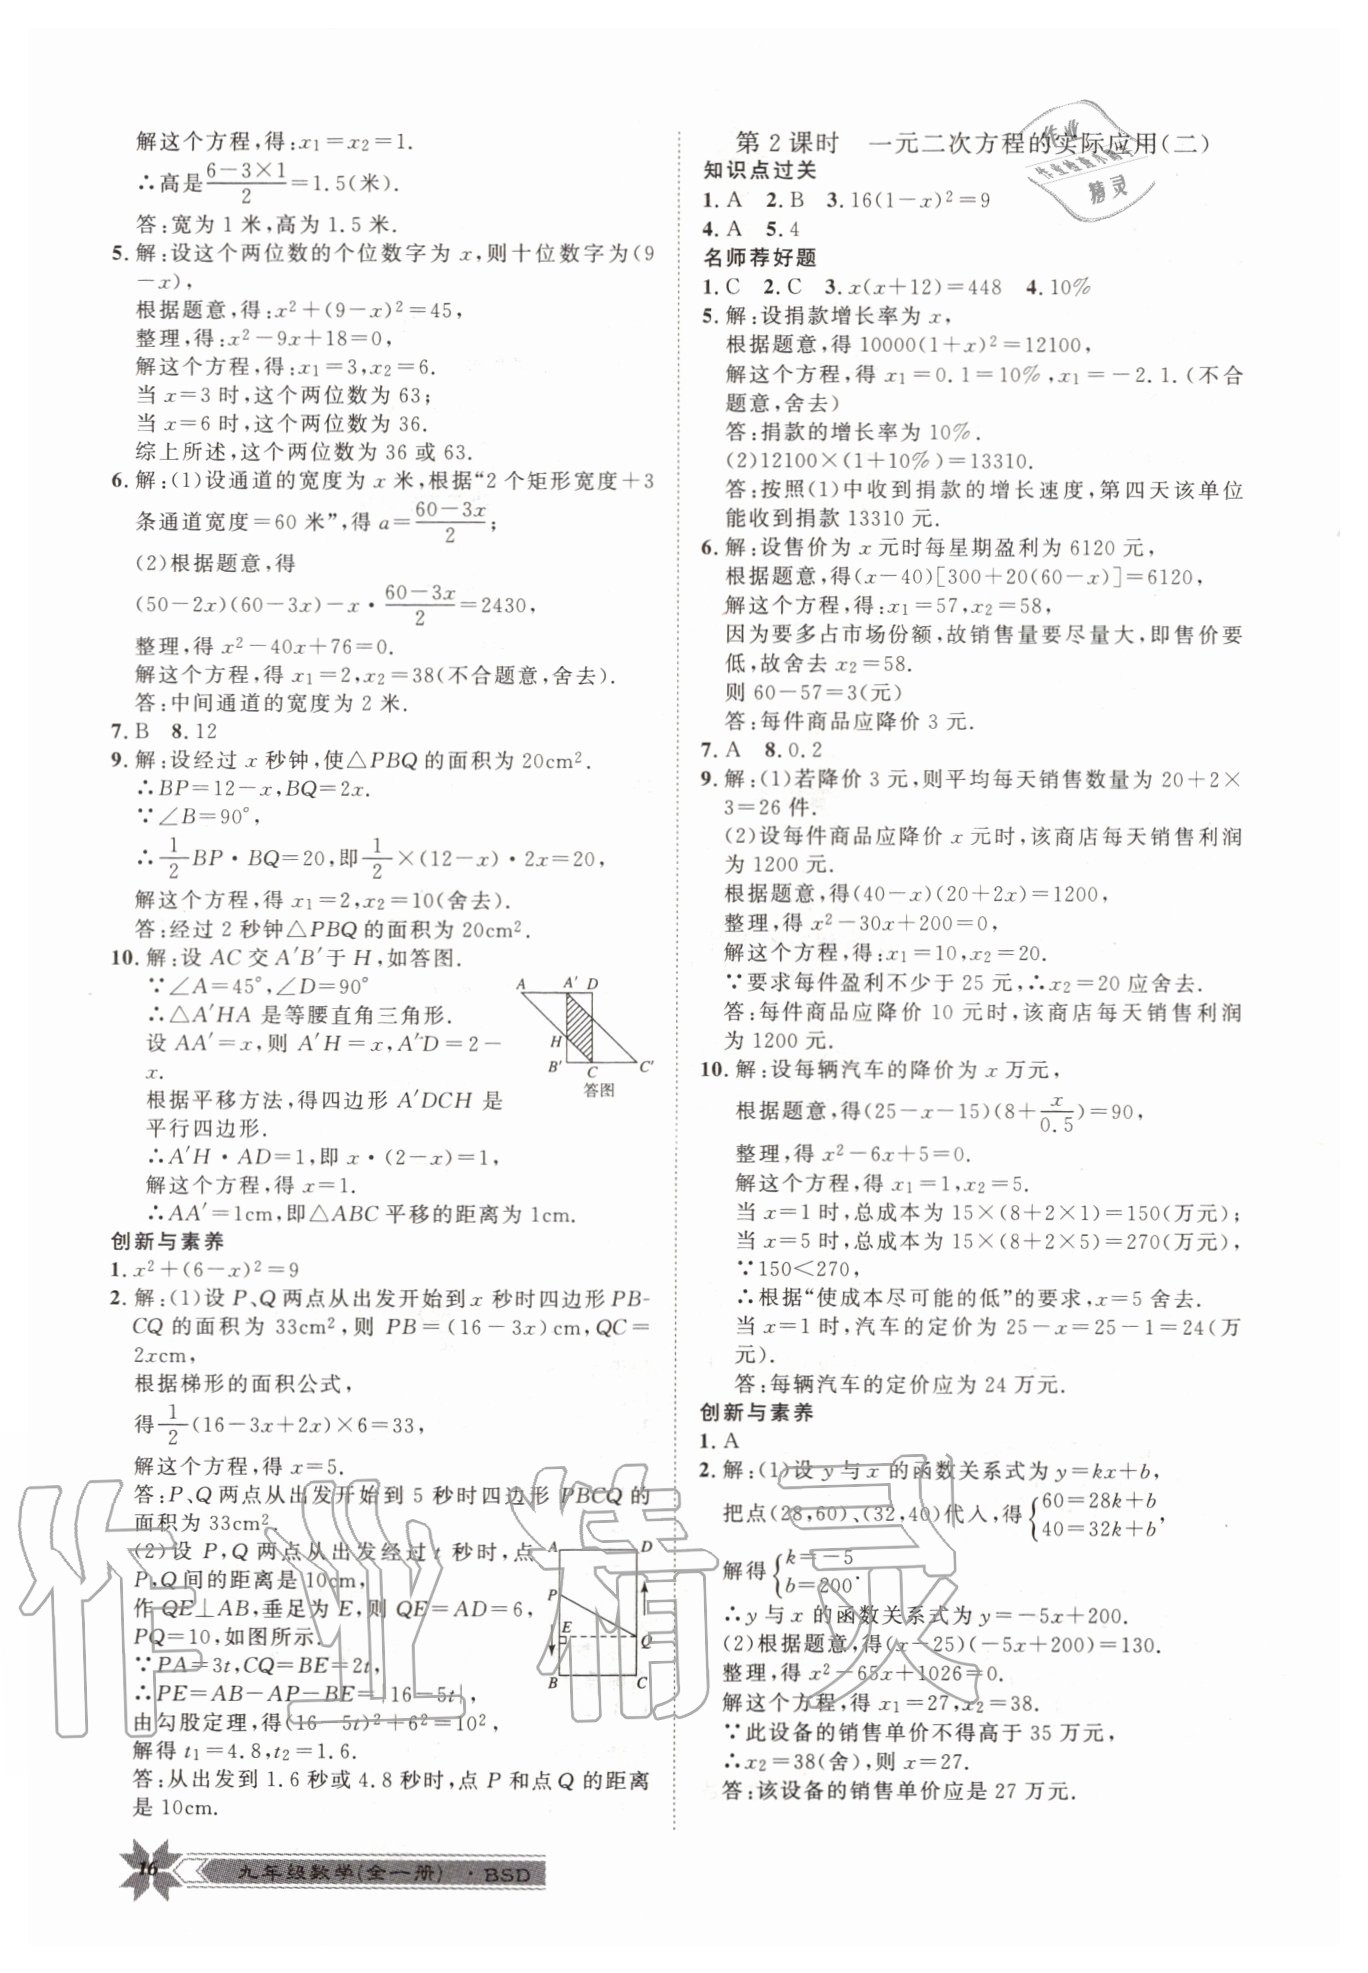 解这个方程,得:x₁=x₂=1.
∴高是(6-3×1)/2=1.5(米).
答:宽为1米,高为1.5米.
5. 解:设这个两位数的个位数字为x,则十位数字为(9
-x),
根据题意,得:x²+(9-x)²=45,
整理,得:x²-9x+18=0,
解这个方程,得:x₁=3,x₂=6.
当x=3时,这个两位数为63;
当x=6时,这个两位数为36.
综上所述,这个两位数为36或63.
6. 解:(1)设通道的宽度为x米,根据“2个矩形宽度+3
条通道宽度=60米”,得a=(60-3x)/2;
(2)根据题意,得
(50-2x)(60-3x)-x·(60-3x)/2=2430,
整理,得x²-40x+76=0.
解这个方程,得x₁=2,x₂=38(不合题意,舍去).
答:中间通道的宽度为2米.
7. B 8. 12
9. 解:设经过x秒钟,使△PBQ的面积为20cm².
∴BP=12-x,BQ=2x.
∵∠B=90°,
∴1/2 BP·BQ=20,即1/2×(12-x)·2x=20,
解这个方程,得x₁=2,x₂=10(舍去).
答:经过2秒钟△PBQ的面积为20cm².
10. 解:设AC交A′B′于H,如答图.
∵∠A=45°,∠D=90°
∴△A′HA是等腰直角三角形.
设AA′=x,则A′H=x,A′D=2-
x.
根据平移方法,得四边形A′DCH是
平行四边形.
∴A′H·AD=1,即x·(2-x)=1,
解这个方程,得x=1.
∴AA′=1cm,即△ABC平移的距离为1cm.
A A′ D
H
B′ C C′
答图
创新与素养
1. x²+(6-x)²=9
2. 解:(1)设P、Q两点从出发开始到x秒时四边形PB-
CQ的面积为33cm²,则PB=(16-3x)cm,QC=
2xcm,
根据梯形的面积公式,
得1/2(16-3x+2x)×6=33,
解这个方程,得x=5.
答:P、Q两点从出发开始到5秒时四边形PBCQ的
面积为33cm².
(2)设P,Q两点从出发经过t秒时,点
P,Q间的距离是10cm,
作QE⊥AB,垂足为E,则QE=AD=6,
PQ=10,如图所示.
∵PA=3t,CQ=BE=2t,
∴PE=AB-AP-BE=|16-5t|,
由勾股定理,得(16-5t)²+6²=10²,
解得t₁=4.8,t₂=1.6.
答:从出发到1.6秒或4.8秒时,点P和点Q的距离
是10cm.
A D
P
E
Q
B C
16 九年级数学(全一册)·BSD
第2课时 一元二次方程的实际应用(二)
知识点过关
1. A 2. B 3. 16(1-x)²=9
4. A 5. 4
名师荐好题
1. C 2. C 3. x(x+12)=448 4. 10%
5. 解:设捐款增长率为x,
根据题意,得10000(1+x)²=12100,
解这个方程,得x₁=0.1=10%,x₁=-2.1.(不合
题意,舍去)
答:捐款的增长率为10%.
(2)12100×(1+10%)=13310.
答:按照(1)中收到捐款的增长速度,第四天该单位
能收到捐款13310元.
6. 解:设售价为x元时每星期盈利为6120元,
根据题意,得(x-40)[300+20(60-x)]=6120,
解这个方程,得:x₁=57,x₂=58,
因为要多占市场份额,故销售量要尽量大,即售价要
低,故舍去x₂=58.
则60-57=3(元)
答:每件商品应降价3元.
7. A 8. 0.2
9. 解:(1)若降价3元,则平均每天销售数量为20+2×
3=26件.
(2)设每件商品应降价x元时,该商店每天销售利润
为1200元.
根据题意,得(40-x)(20+2x)=1200,
整理,得x²-30x+200=0,
解这个方程,得x₁=10,x₂=20.
∵要求每件盈利不少于25元,∴x₂=20应舍去.
答:每件商品应降价10元时,该商店每天销售利润
为1200元.
10. 解:设每辆汽车的降价为x万元,
根据题意,得(25-x-15)(8+x/0.5)=90,
整理,得x²-6x+5=0.
解这个方程,得x₁=1,x₂=5.
当x=1时,总成本为15×(8+2×1)=150(万元);
当x=5时,总成本为15×(8+2×5)=270(万元),
∵150<270,
∴根据“使成本尽可能的低”的要求,x=5舍去.
当x=1时,汽车的定价为25-x=25-1=24(万
元).
答:每辆汽车的定价应为24万元.
创新与素养
1. A
2. 解:(1)设y与x的函数关系式为y=kx+b,
把点(28,60)、(32,40)代人,得{60=28k+b
40=32k+b,
解得{k=-5
b=200.
∴y与x的函数关系式为y=-5x+200.
(2)根据题意,得(x-25)(-5x+200)=130.
整理,得x²-65x+1026=0.
解这个方程,得x₁=27,x₂=38.
∵此设备的销售单价不得高于35万元,
∴x₂=38(舍),则x=27.
答:该设备的销售单价应是27万元.
作业
精灵
作业精灵